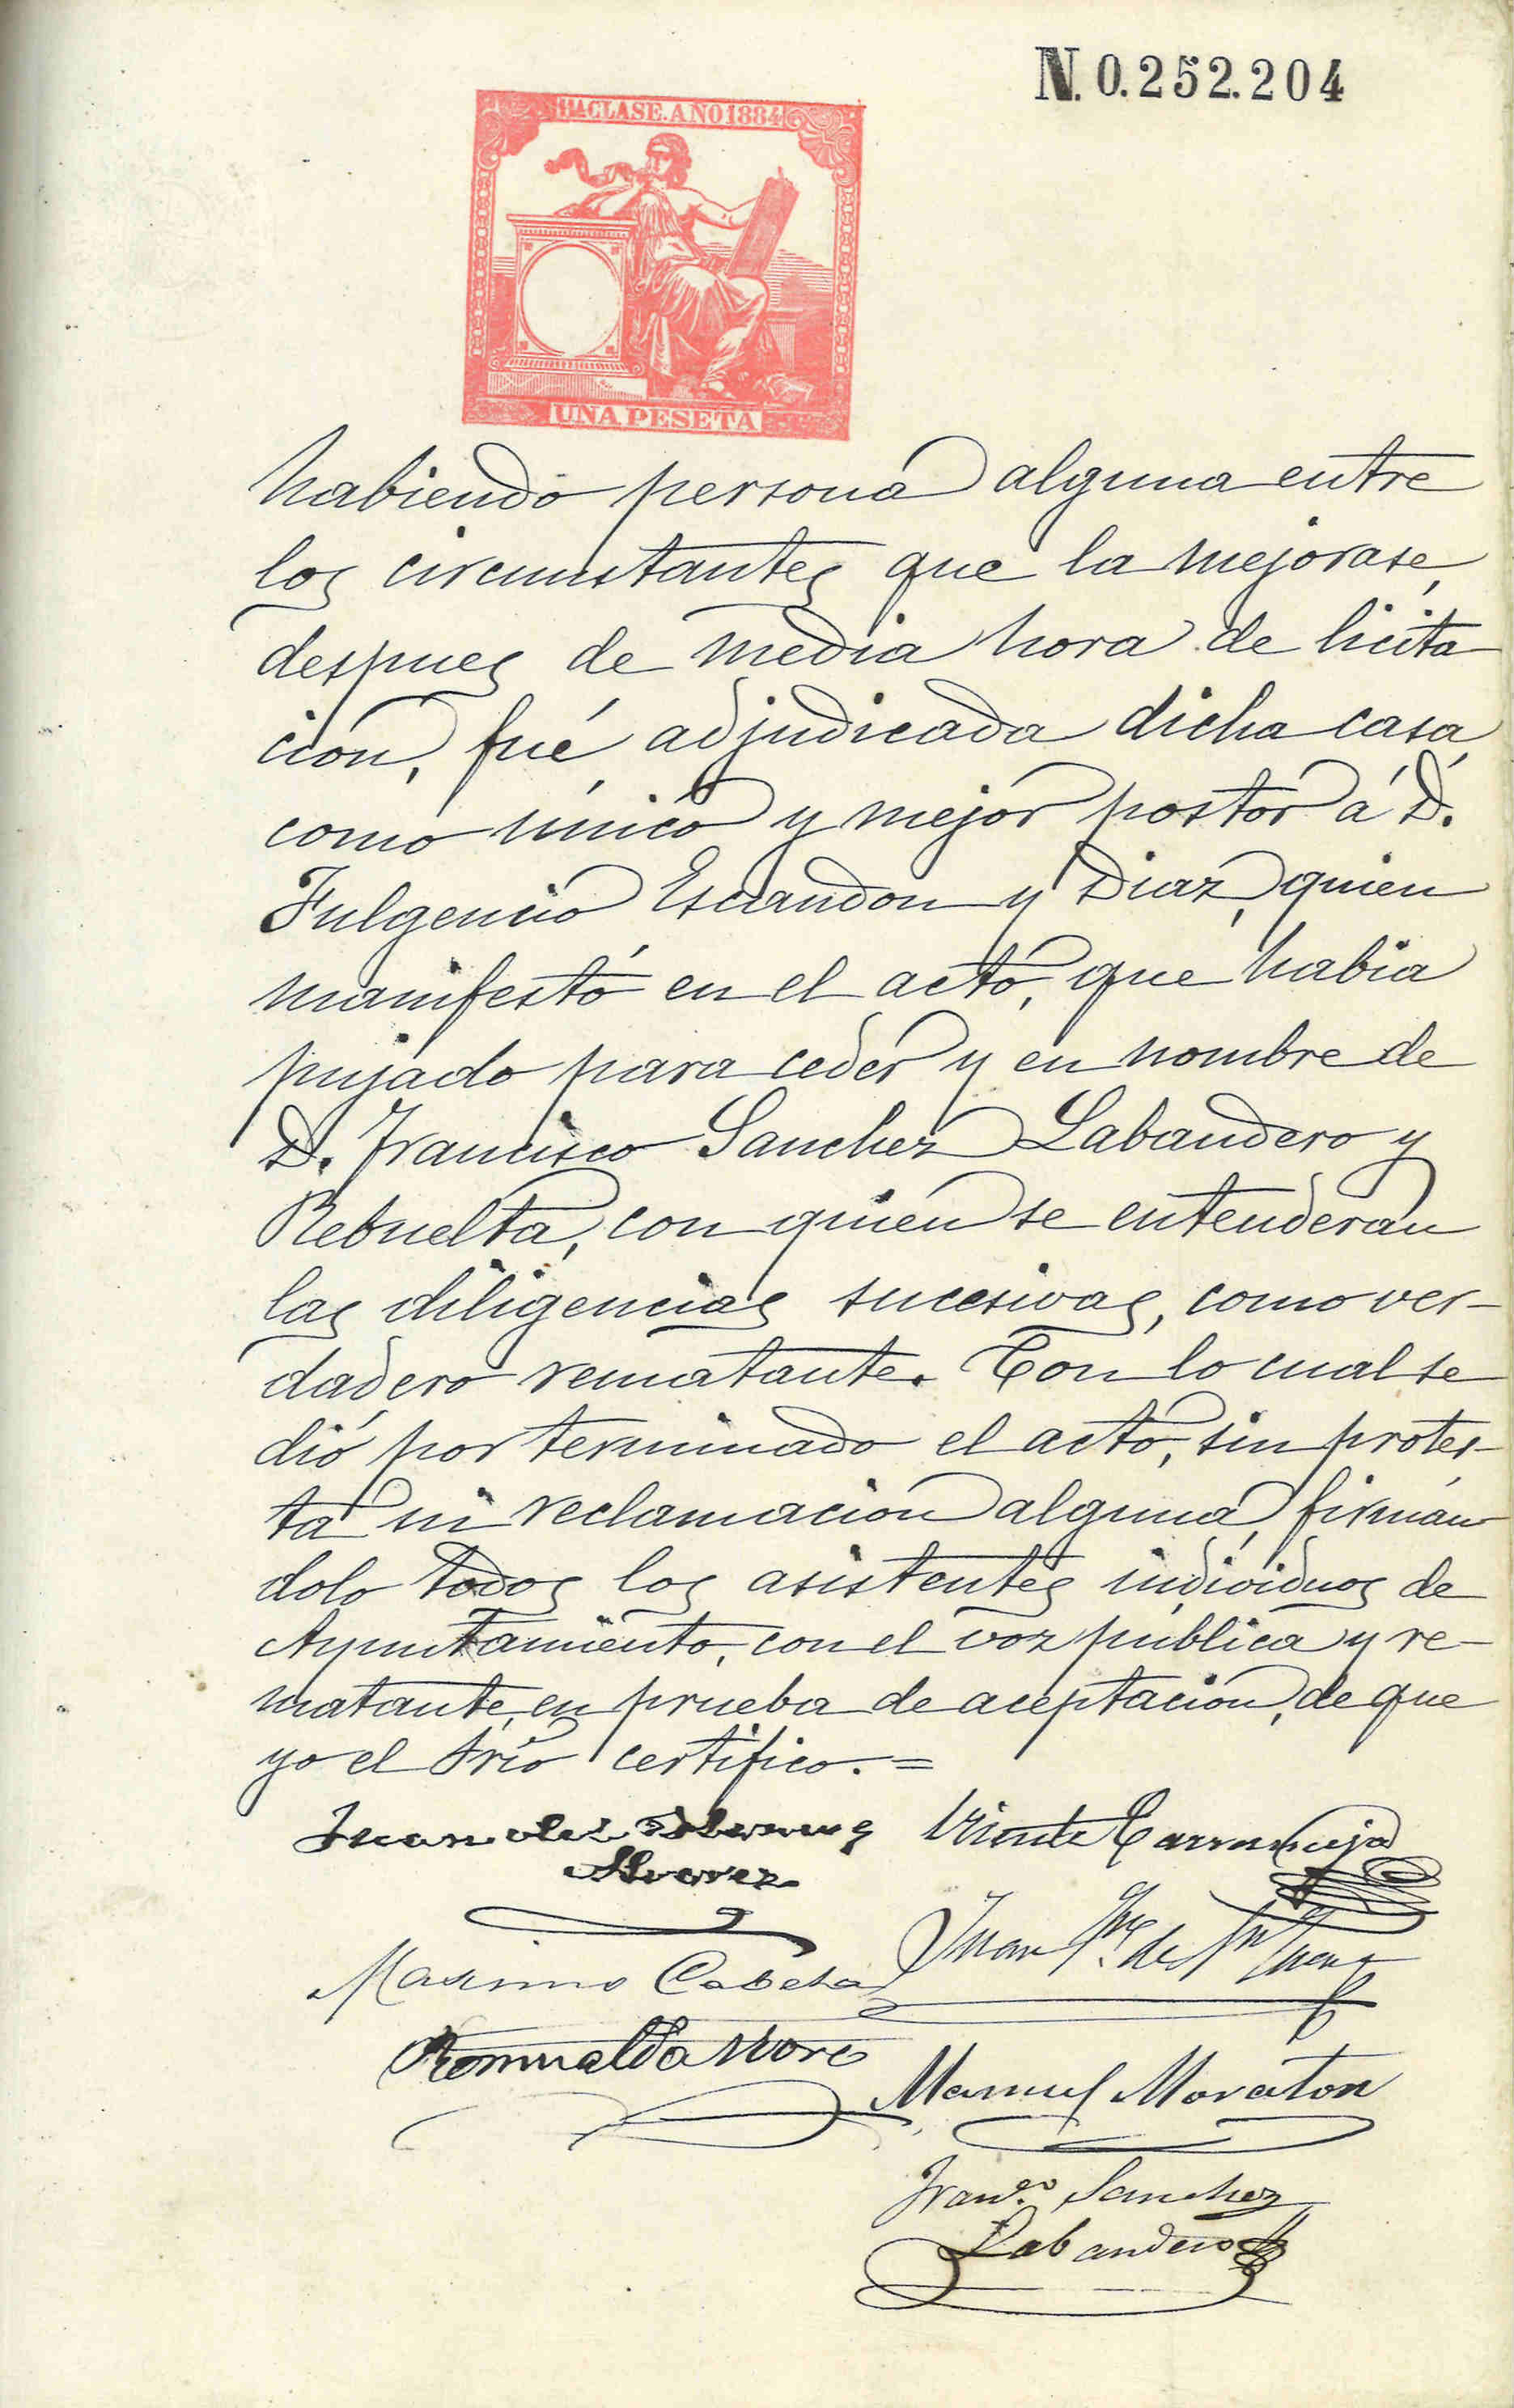 N. 0.252.204
11ª CLASE. AÑO 1884
UNA PESETA
habiendo persona alguna entre
los circunstantes que la mejorase,
despues de media hora de licita
ción, fué adjudicada dicha casa,
como único y mejor postor á D.
Fulgencio Escandon y Diaz, quien
manifestó en el acto, que habia
pujado para ceder y en nombre de
D. Francisco Sanchez Labandero y
Rebuelta, con quien se entenderán
las diligencias sucesivas, como ver-
dadero rematante. Con lo cual se
dió por terminado el acto, sin protes-
ta ni reclamacion alguna, firmán
dolo todos los asistentes individuos de
Ayuntamiento, con el voz pública y re-
matante, en prueba de aceptacion, de que
yo el Srio certifico. =
Juan
Vicente
Alvarez
Juan
Maximo
Romualdo Moro
Manuel Moraton
Franco. Sanchez
Labandero